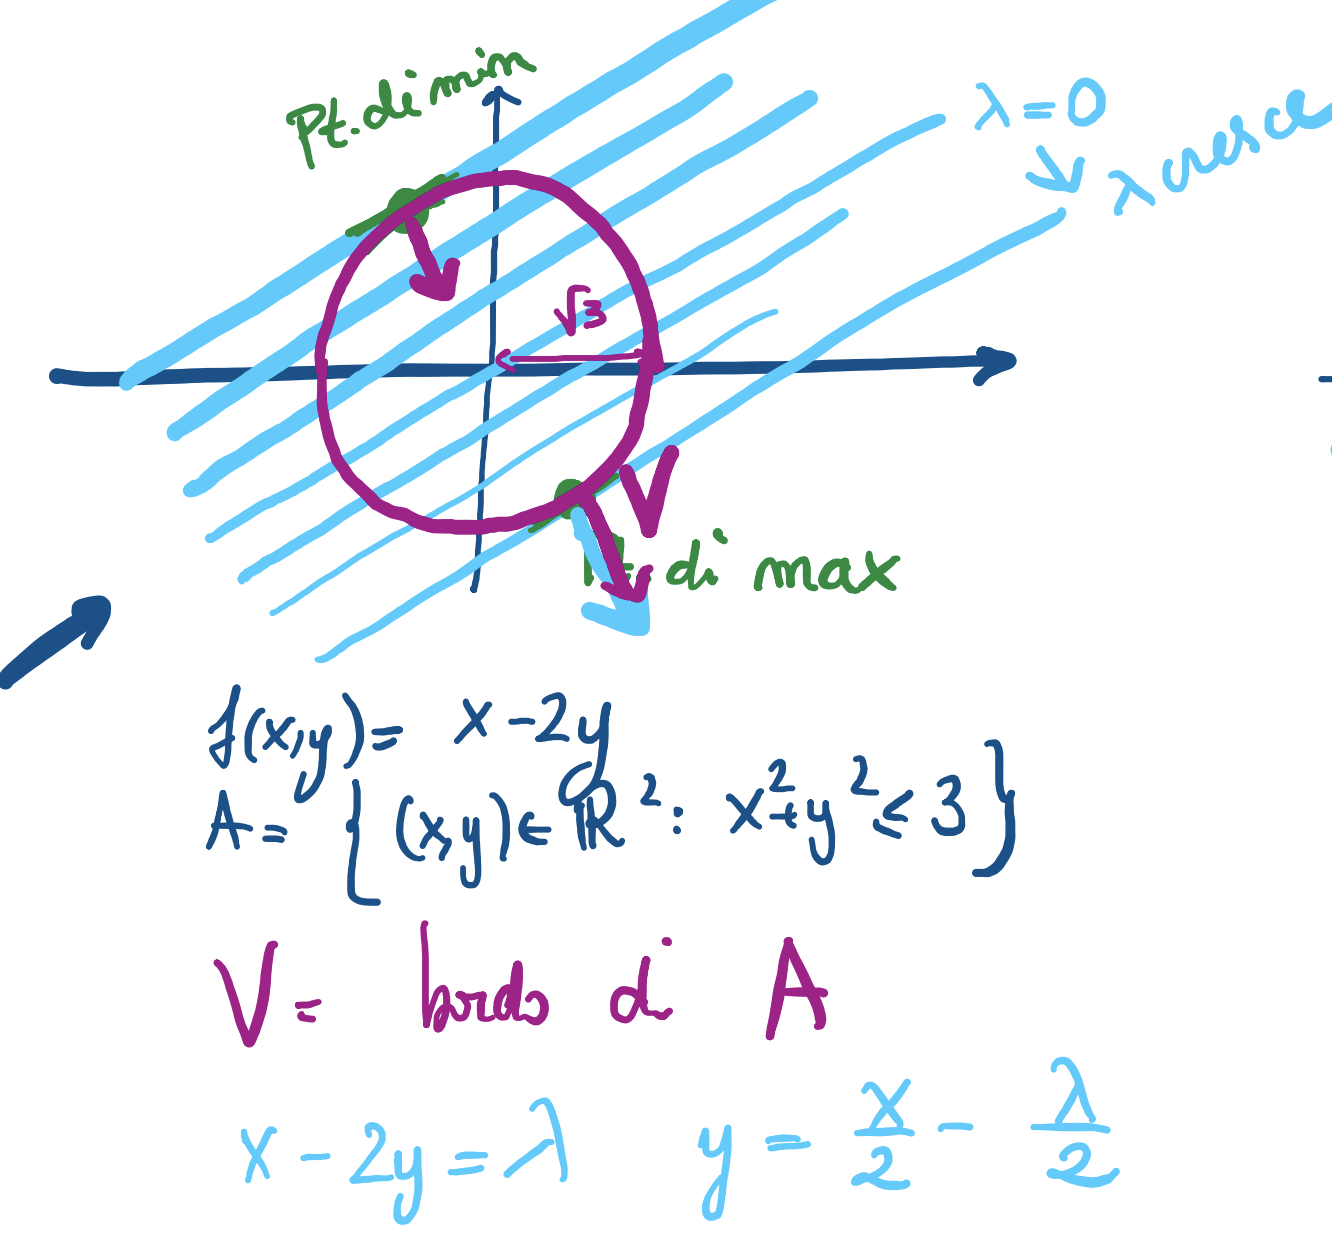 Pt. di min
λ=0
λ cresce
√3
V
Pt di max
f(x,y)= x-2y
A= {(x,y)∈ℝ²: x²+y²≤3}
V= bordo di A
x-2y=λ y = x/2 - λ/2